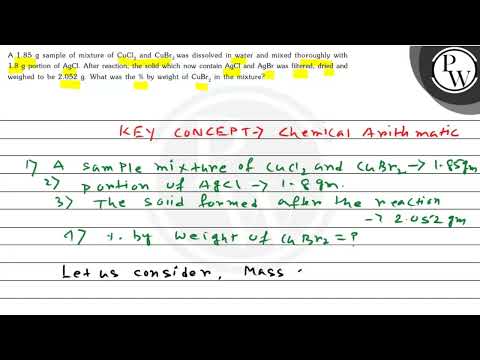 A 1.85 g sample of mixture of CuCl₂ and CuBr₂ was dissolved in water and mixed thoroughly with
1.8 g portion of AgCl. After reaction, the solid which now contain AgCl and AgBr was filtered, dried and
weighed to be 2.052 g. What was the % by weight of CuBr₂ in the mixture?
PW
KEY CONCEPT→ Chemical Arithmatic
1) A sample mixture of CuCl₂ and CuBr₂ → 1.85gm
2) portion of AgCl → 1.8 gm.
3) The solid formed after the reaction
→ 2.052 gm
4) % by weight of CuBr₂ = ?
Let us consider, Mass